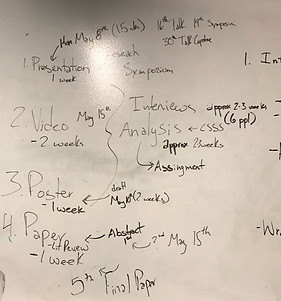 Mon May 8th (15 min) 16th Talk 19th Symposium
30th Talk Capture
1. Presentation Research Symposium
1 week
2. Video May 15th
- 2 weeks
Inteniews approx 2-3 weeks
(6 ppl)
Analysis ← CSSS
approx 2 weeks
→ Assingment
3. Poster draft
- 1 week May 10th (2 weeks)
4. Paper Abstract
- Lit Review 1st → 2nd May 15th
- 1 week
5th Final Paper
1. Int
- Wr